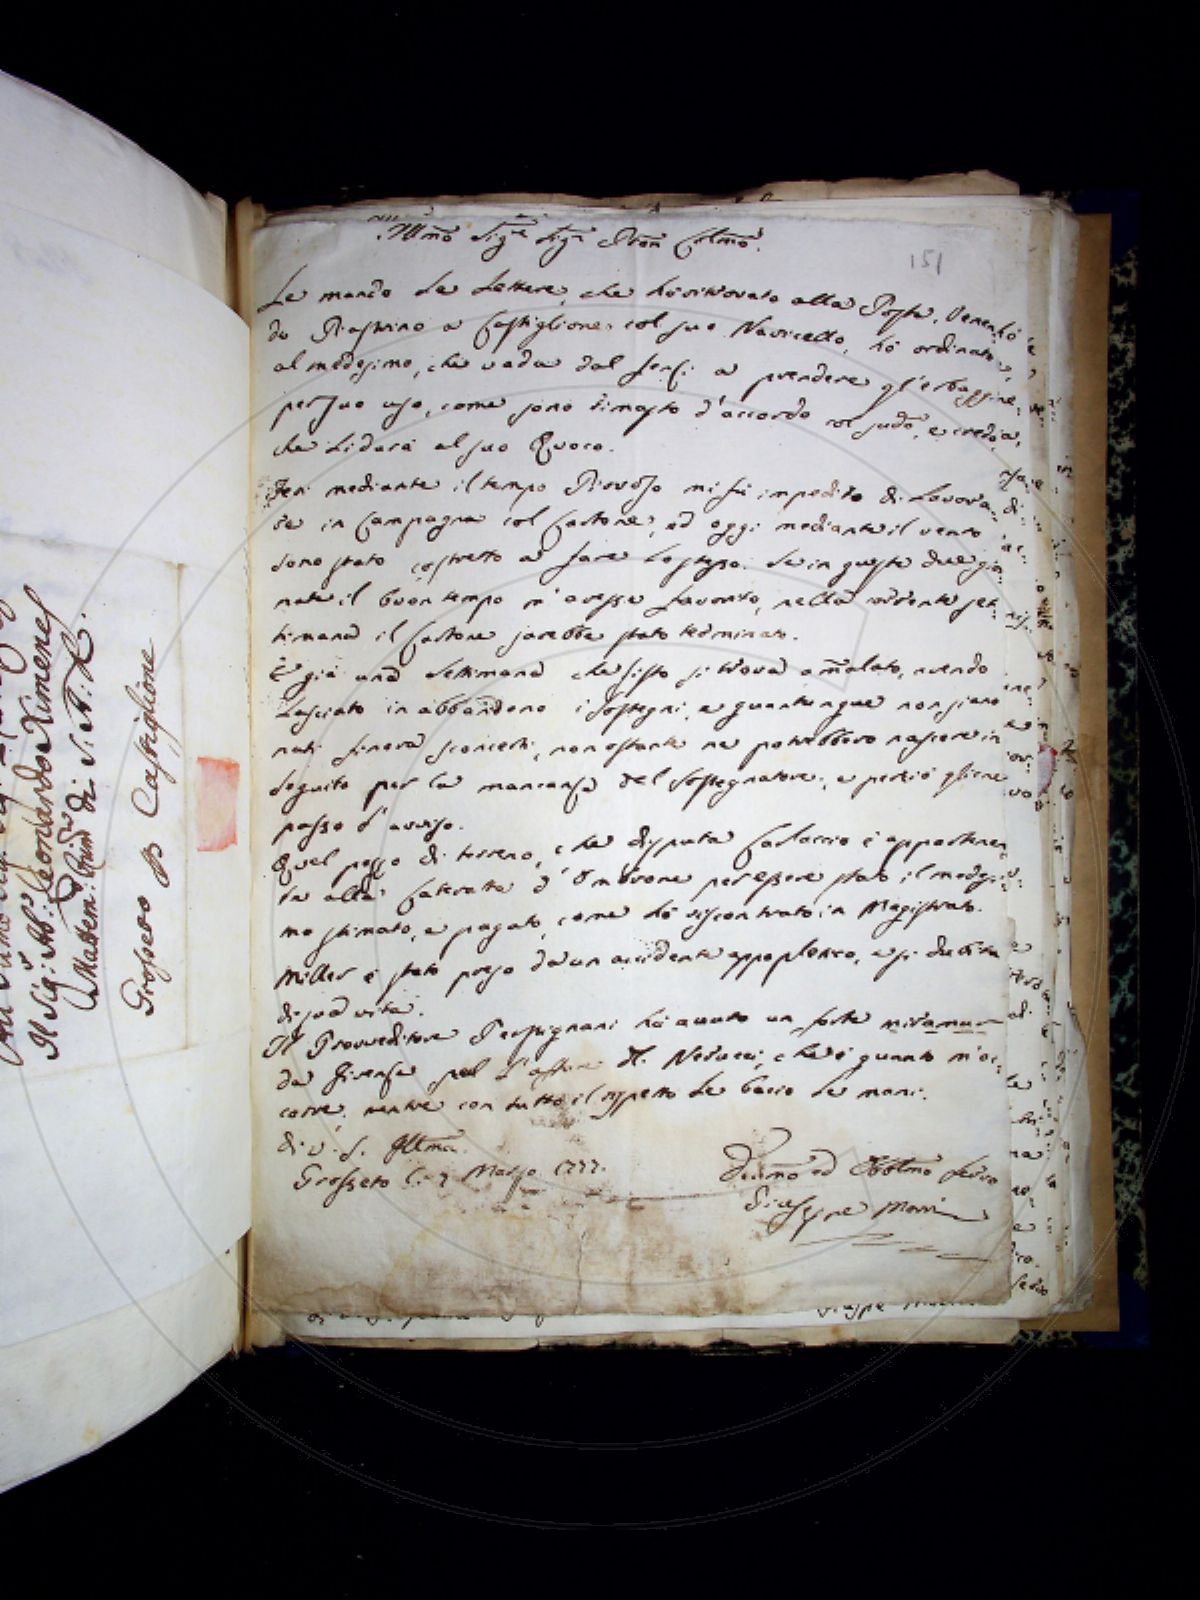 Ill.mo Sig.re Sig.r Pron Col.mo
151
Le mando le Lettere, che hò ritrovato alla Posta. Venen
do Piastrino a Castiglione col suo Navicello, hò ordinato
al medesimo, che vada dal Sensi a prendere gl'erbaggi
per suo uso, come sono rimasto d'accordo col sud.o, e credo
che li darà al suo Quoco.
Jeri mediante il tempo Piovoso mi fù impedito di Lavora-
re in Campagna col Cartone, ed oggi mediante il vento
sono stato costretto a fare lo stesso. Se in queste due gior
nate il buon tempo m'avesse favorito, nella ventura set
timana il Cartone sarebbe stato terminato.
È già una settimana che Sisto si trova amalato, avendo
lasciato in abbandono i Sostegni, e quantunque non siano
nati finora sconcerti, nonostante ne potrebbero nascere in
seguito per la mancanza del Sostegnatore, e perciò gliene
passo l'avviso.
Quel pezzo di terreno, che disputa Carloccio è appartenen
te alla Cateratta d'Ombrone per essere stato il medesi-
mo stimato, e pagato, come hò riscontrato in Magistrato.
Miller è stato preso da un accidente appopletico, e si dubita
di sua vita.
Il Provveditore Perpignani hà avuto un forte miramur
da Firenze pel l'affare Nerucci, che è quanto m'oc-
corre, mentre con tutto il rispetto le bacio le mani.
di V. S. Ill.ma
Grosseto li 7 Marzo 1777.
Dev.mo ed Obbl.mo Servo
Giuseppe
Il Sig.r Ab. Leonardo Ximenes
Mattem. di S. A. R.
Grosseto p Castiglione